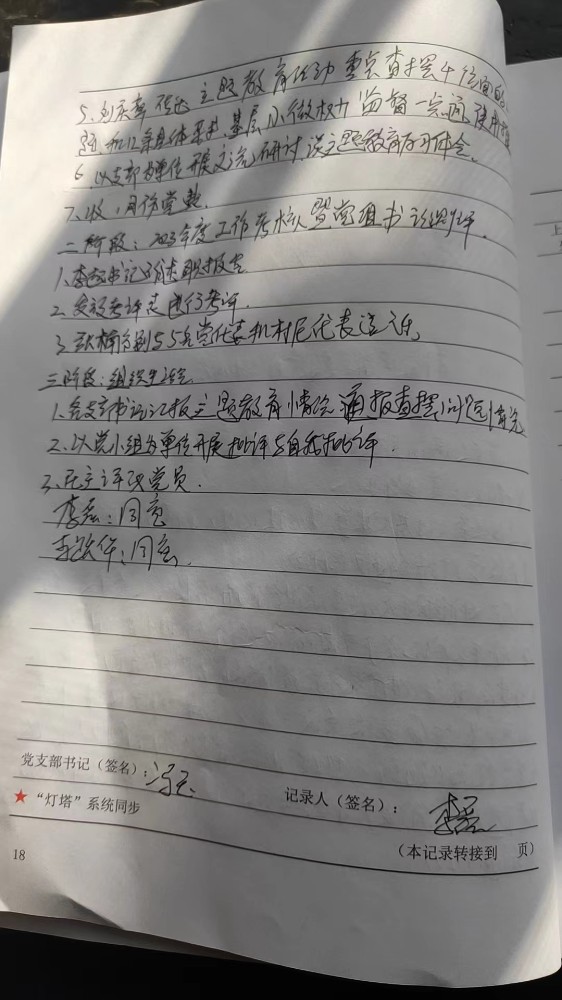 5. 主题教育活动 重点查摆4个方面
题和12条具体要求 基层小微权力 监督一点通使用
6. 以支部为单位开展交流研讨 谈主题教育学习体会.
7. 收1月份党费
二阶段: 2023年度工作考核暨党组书记述评.
1. 李 书记了述职报告
2. 发放考评表进行考评.
3. 分别与5名党代表和村民代表谈话
三阶段: 组织生活会
1. 各支部书记汇报主题教育情况 通报查摆问题情况
2. 以党小组为单位开展批评与自我批评.
3. 民主评议党员.
李磊: 同意
李 华: 同意.
党支部书记(签名):
记录人(签名): 李磊
★ “灯塔”系统同步
18
(本记录转接到 页)